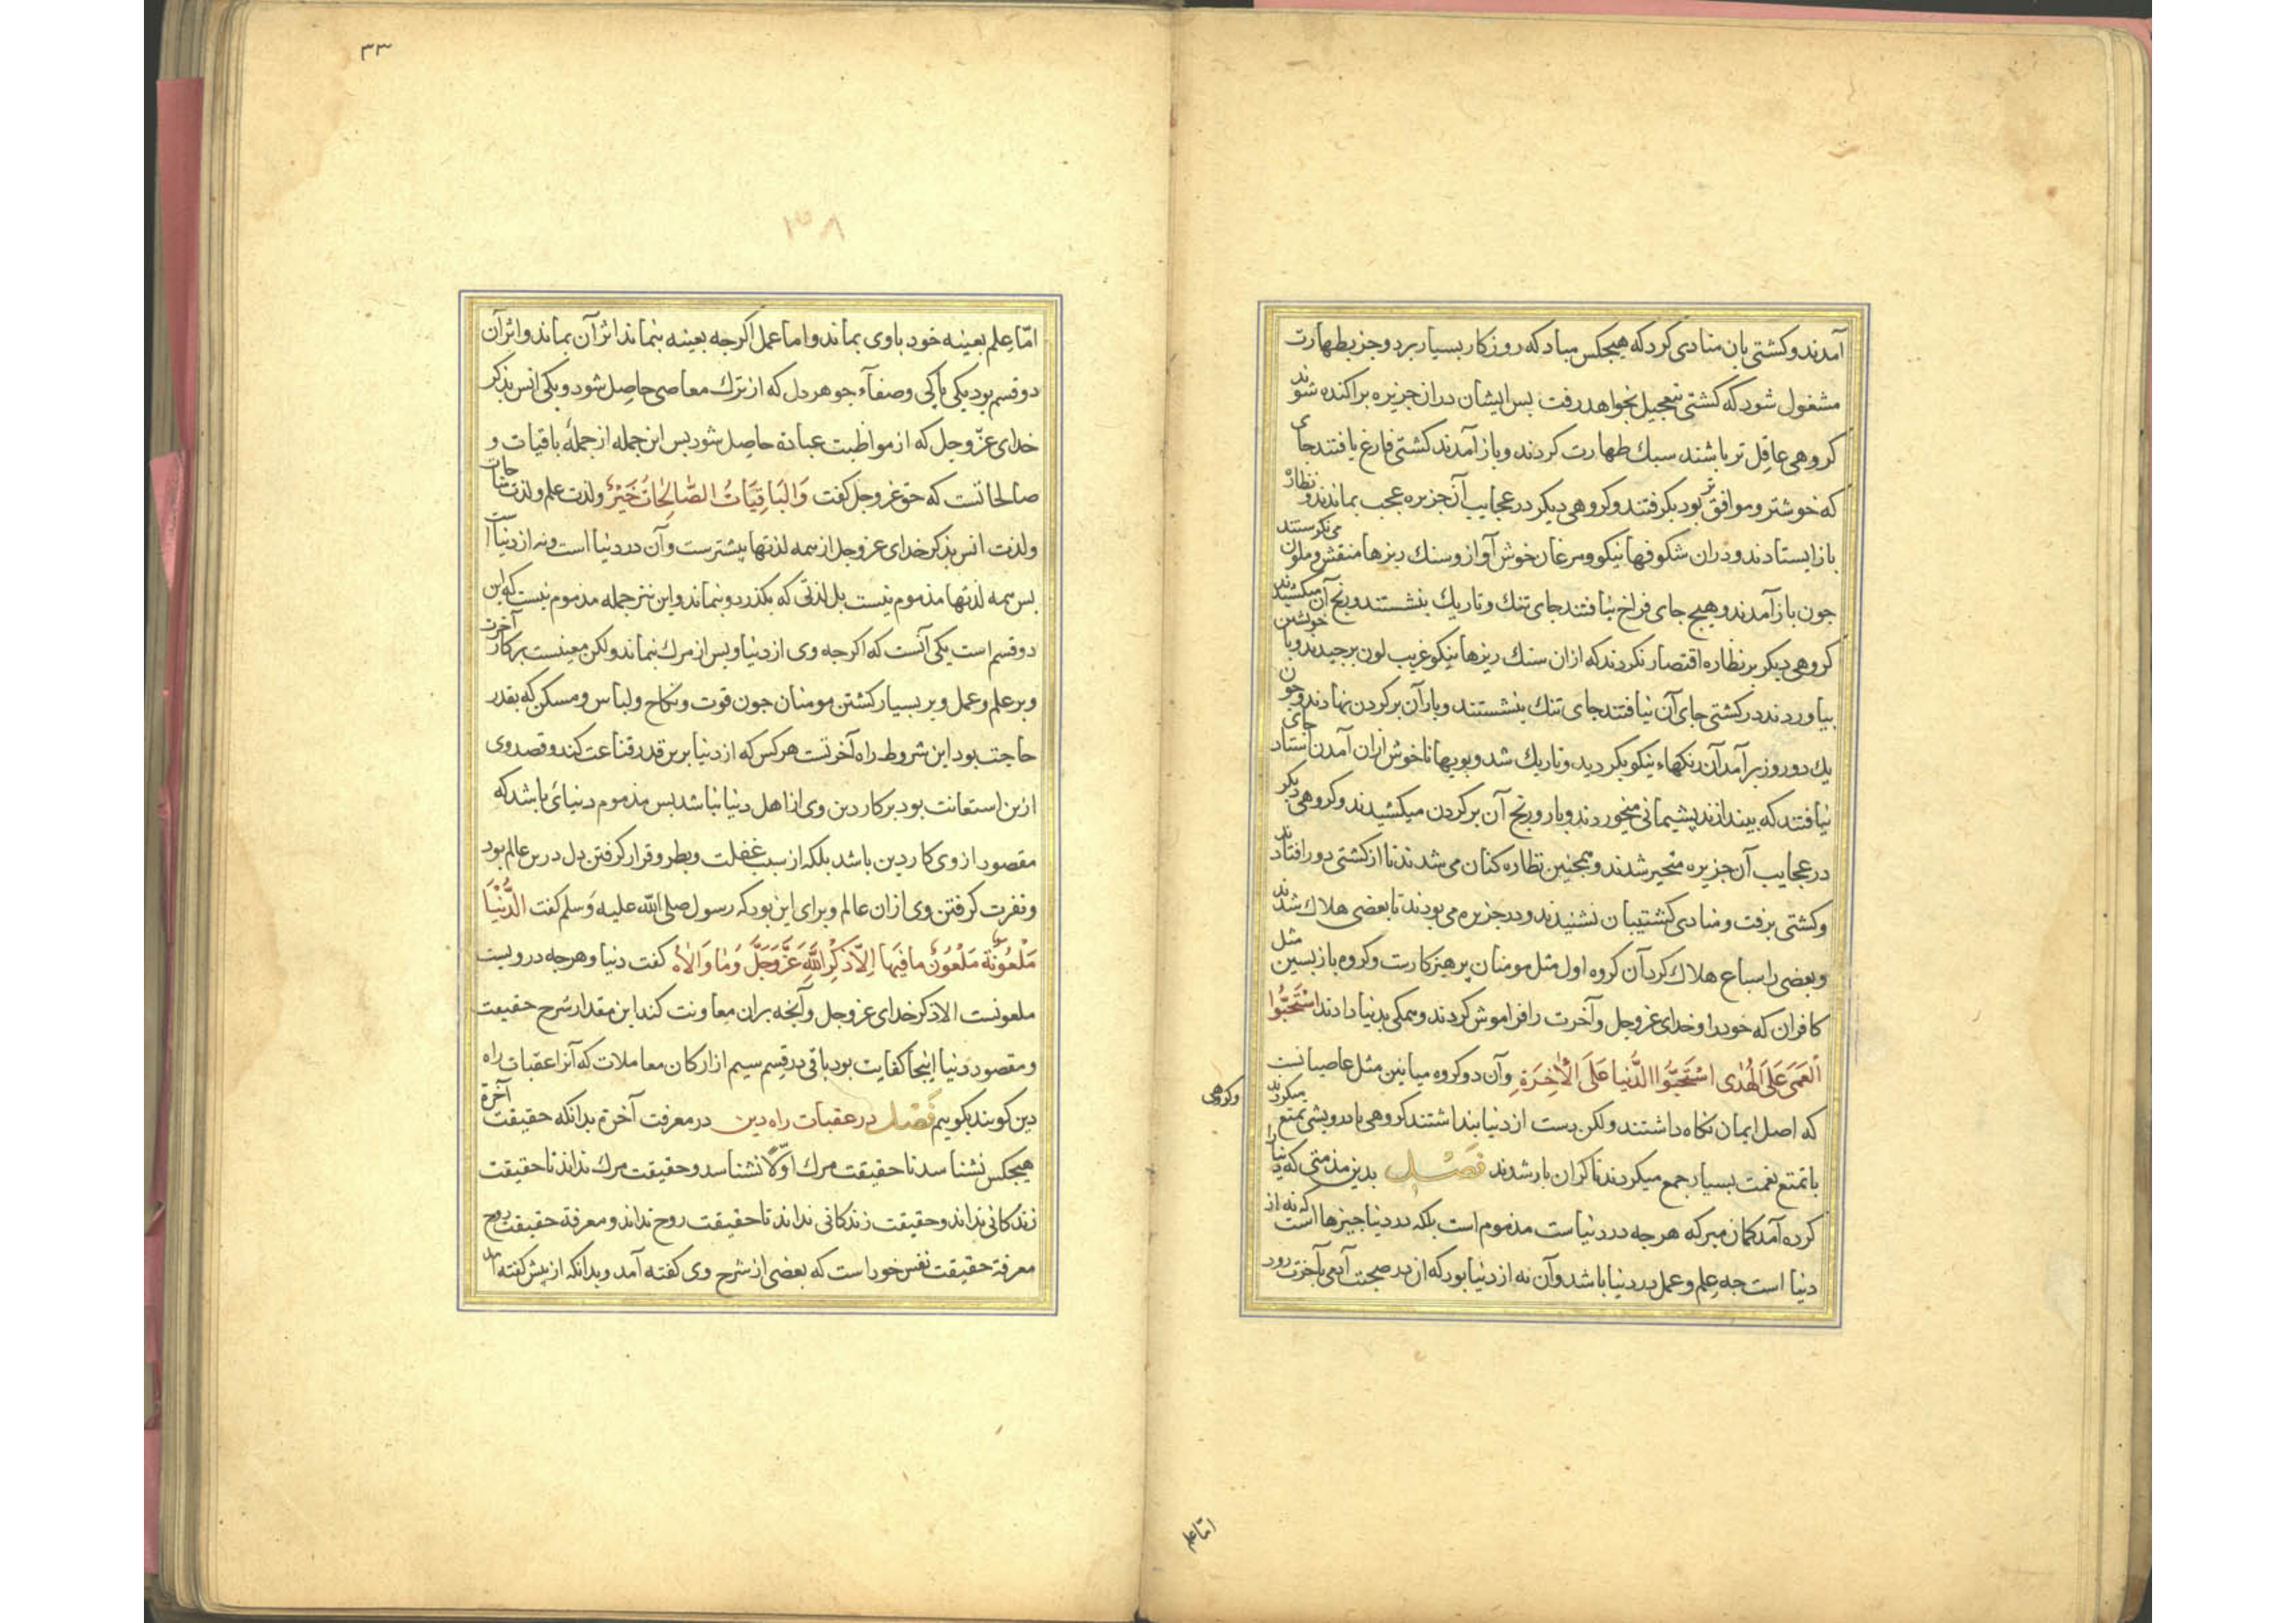 آمدند و کشتی بان منادی کرد که هیجکس مباد که روزکار بسیار برد و جز بطهارت
مشغول شود که کشتی بتعجیل بخواهد رفت بس ایشان دران جزیره براکنده شوند
کروهی عاقل تر باشند سبک طهارت کردند و باز آمدند کشتی فارغ یافتند جای
که خوشتر و موافق تر بود بکرفتند و کروهی دیکر در عجایب آن جزیره عجب بماندند و نظاره
باز ایستادند و دران شکوفها نیکو و مرغان خوش آواز و سنک ریزها منقش و ملون می نکرستند
جون باز آمدند و هیج جای فراخ نیافتند جای تنک و تاریک بنشستند و رنج آن میکشیدند
کروهی دیکر بر نظاره اقتصار نکردند که ازان سنک ریزها نیکو غریب لون برجیدند و با خویشتن
بیاوردند در کشتی جای آن نیافتند جای تنک بنشستند و بار آن بر کردن نهادند و جون
یک دو روز بر آمد آن رنکهاء نیکو بکردید و تاریک شد و بویها ناخوش ازان آمدن استاد جای
نیافتند که بیندازند بشیمانی میخوردند و بار و رنج آن بر کردن میکشیدند و کروهی دیکر
در عجایب آن جزیره متحیر شدند و همجنین نظاره کنان می شدند تا از کشتی دور افتادند
و کشتی برفت و منادی کشتیبان نشنیدند و در جزیره می بودند تا بعضی هلاک شدند
و بعضی را سباع هلاک کرد آن کروه اول مثل مومنان برهیزکارست و کروه بازبسین مثل
کافران که خود را و خدای عز و جل و آخرت را فراموش کردند و همکی بدنیا دادند استَحَبُّوا
الْعَمَی عَلَی الْهُدٰی اسْتَحَبُّوا الدُّنْیا عَلَی الْاٰخِرَةِ و آن دو کروه میانین مثل عاصیانست
که اصل ایمان نکاه داشتند ولکن دست از دنیا بنداشتند کروهی با درویشی تمتع میکردند
وکروهی
با تمتع نعمت بسیار جمع میکردند تا کران بار شدند فصل بدین مذمتی که دنیا را
کرده آمد کمان مبر که هرجه در دنیاست مذموم است بلکه در دنیا جیزها است که نه از
دنیا است جه علم و عمل در دنیا باشد و آن نه از دنیا بود که از در صحبت آدمی بآخرت رود
امّا علم
۳۳
۱۳۸
امّا علم بعینه خود با وی بماند و اما عمل اکرجه بعینه بنماند اثر آن بماند و اثر آن
دو قسم بود یکی باکی و صفآء جوهر دل که از ترک معاصی حاصل شود و یکی انس بذکر
خدای عزّ و جل که از مواظبت عبادة حاصل شود بس این جمله از جملهٔ باقیات و
صالحاتست که حق عز و جل کفت وَالبَاقِیَاتُ الصَّالِحَاتُ خَیْرٌ ولذت علم و لذت مناجات
و لذت انس بذکر خدای عز و جل از همه لذتها بیشترست و آن در دنیا است و نه از دنیا است
بس همه لذتها مذموم نیست بل لذتی که بکذرد و بنماند و این نیز جمله مذموم نیست که این
دو قسم است یکی آنست که اکرجه وی از دنیا و بس از مرک بنماند ولکن معینست بر کار آخرت
و بر علم و عمل و بر بسیار کشتن مومنان جون قوت و نکاح و لباس و مسکن که بقدر
حاجت بود این شروط راه آخرتست هرکس که از دنیا برین قدر قناعت کند و قصد وی
ازین استعانت بود بر کار دین وی از اهل دنیا نباشد بس مذموم دنیائی باشد که
مقصود از وی کار دین باشد بلکه از سبب غفلت و بطر و قرار کرفتن دل درین عالم بود
و نفرت کرفتن وی ازان عالم و برای این بود که رسول صلی الله علیه وسلم کفت الدُّنْیَا
مَلْعُونَةٌ مَلْعُونٌ مافیها اِلاّ ذِکْرَ اللهِ عَزَّ وَجَلَّ وَمٰا وَالاٰهُ کفت دنیا و هرجه درویست
ملعونست الا ذکر خدای عز و جل و آنجه بران معاونت کند این مقدار شرح حقیقت
و مقصود دنیا اینجا کفایت بود باقی در قسم سیم از ارکان معاملات که آنرا عقبات راه
دین کویند بکوییم فصل در عقبات راه دین در معرفت آخرة بدانکه حقیقت آخرة
هیجکس نشناسد تا حقیقت مرک اوّلا نشناسد و حقیقت مرک نداند تا حقیقت
زندکانی نداند و حقیقت زندکانی نداند تا حقیقت روح نداند و معرفة حقیقت روح
معرفة حقیقت نفس خود است که بعضی از شرح وی کفته آمد و بدانکه از بیش کفته آمد